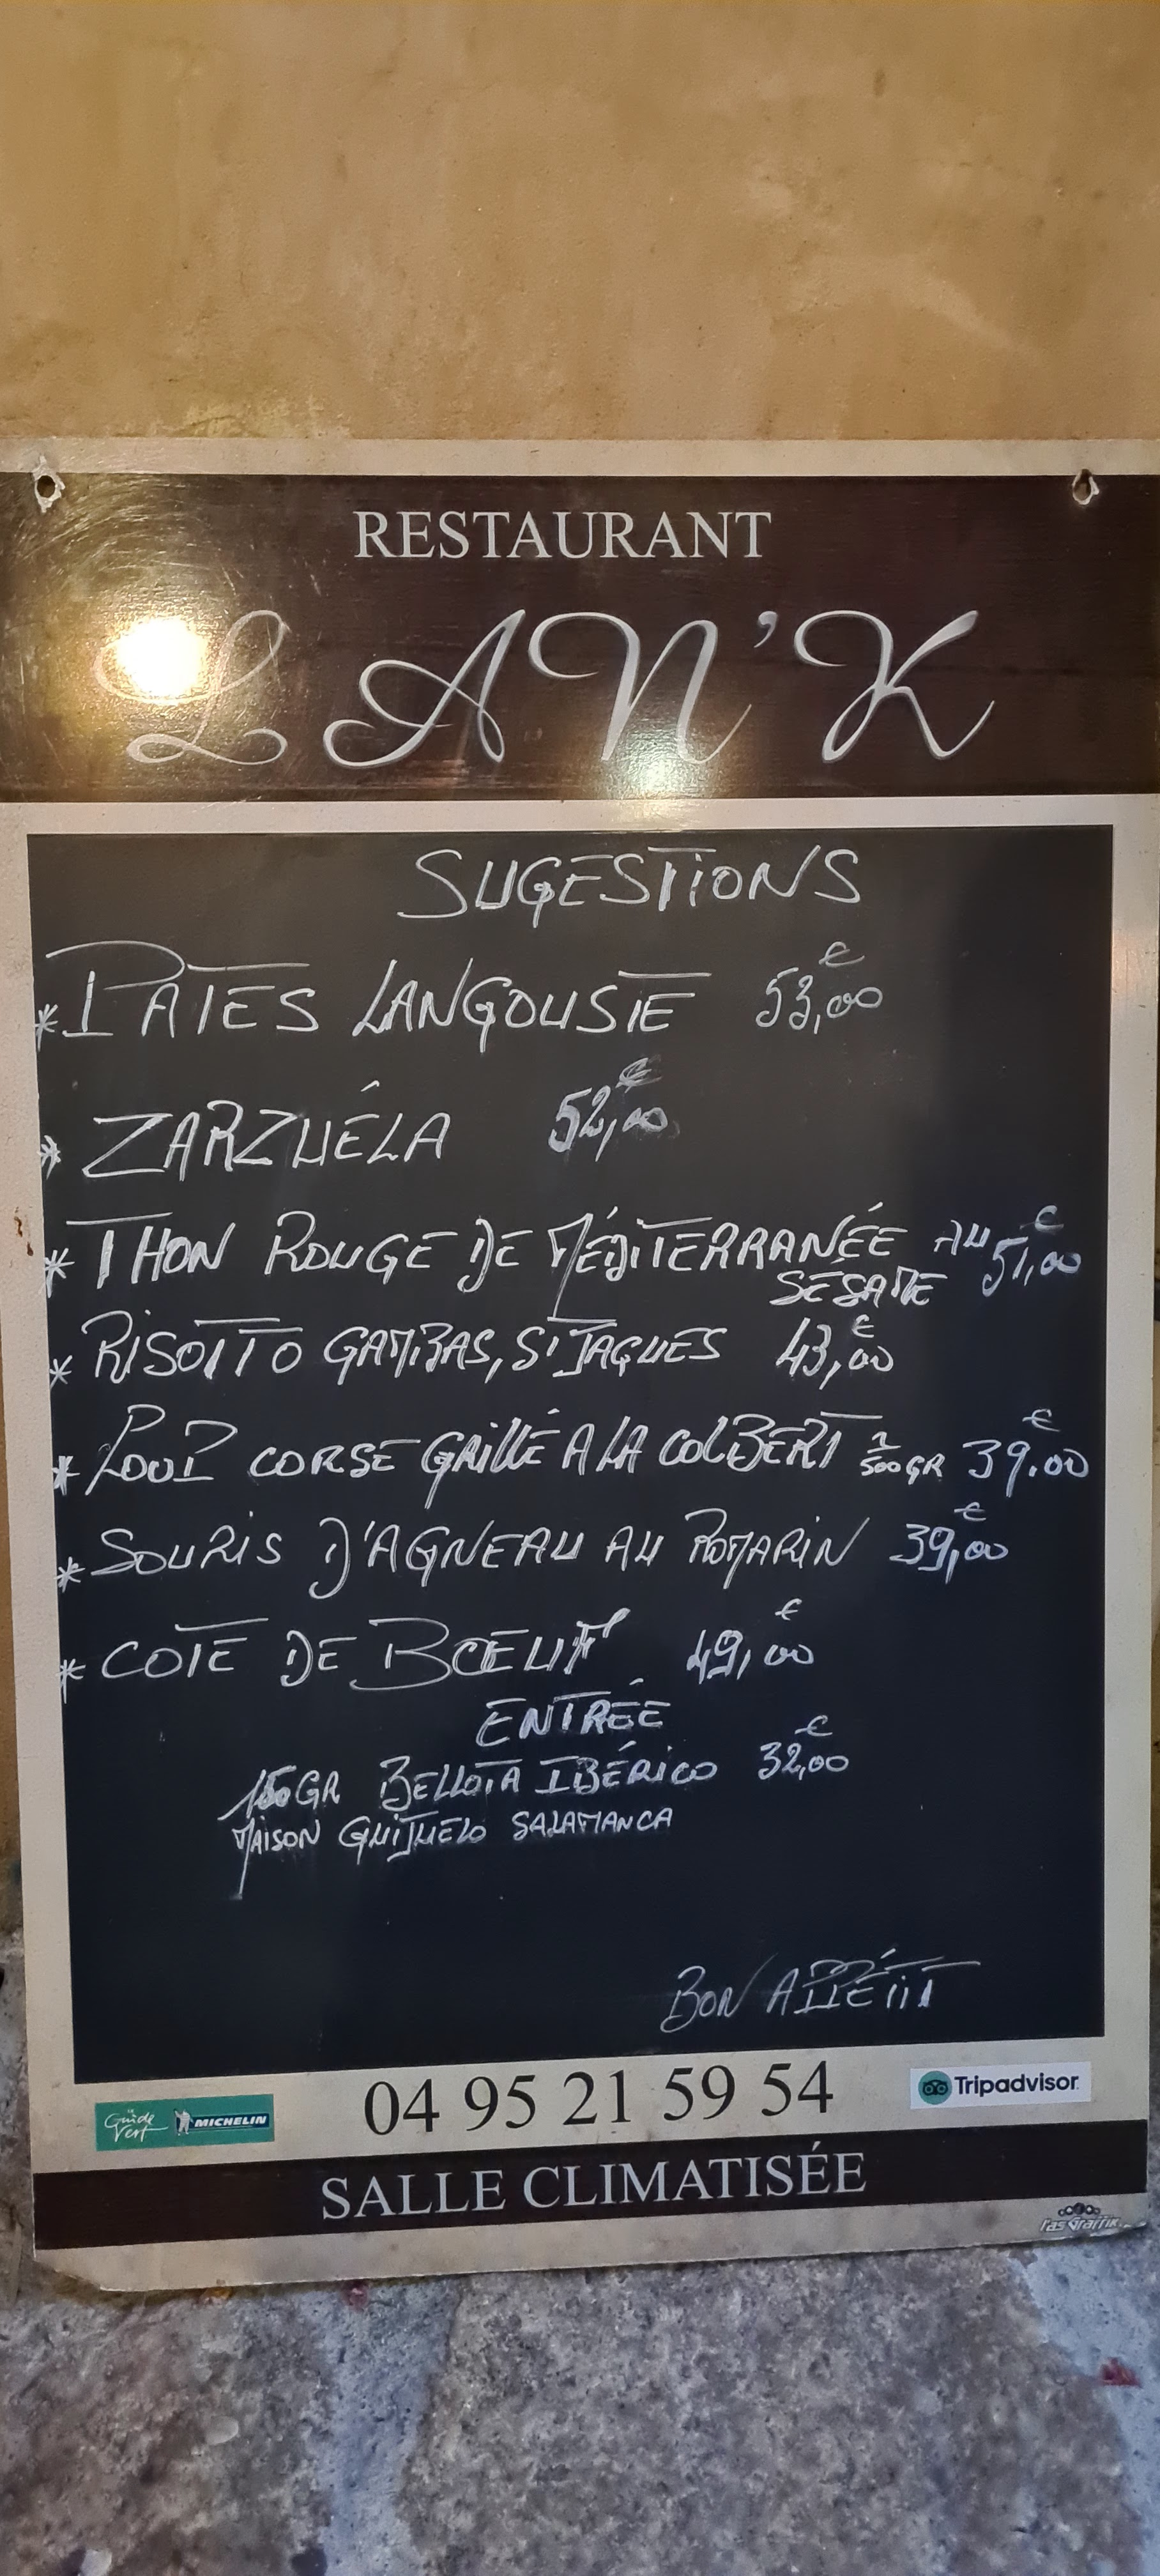 RESTAURANT
L AN'K
SUGESTIONS
* PATES LANGOUSTE 53,00 €
* ZARZUÉLA 52,00 €
* THON ROUGE DE MÉDITERRANÉE AU SÉSAME 51,00 €
* RISOTTO GAMBAS, ST JAQUES 43,00 €
* LOUP CORSE GRILLÉ A LA COLBERT 500GR 39.00 €
* SOURIS D'AGNEAU AU ROMARIN 39,00 €
* COTE DE BŒUF 49,00 €
ENTRÉE
150GR BELLOTA IBÉRICO 32,00 €
MAISON GUIJUELO SALAMANCA
BON APPÉTIT
04 95 21 59 54
Guide Vert MICHELIN
Tripadvisor
SALLE CLIMATISÉE